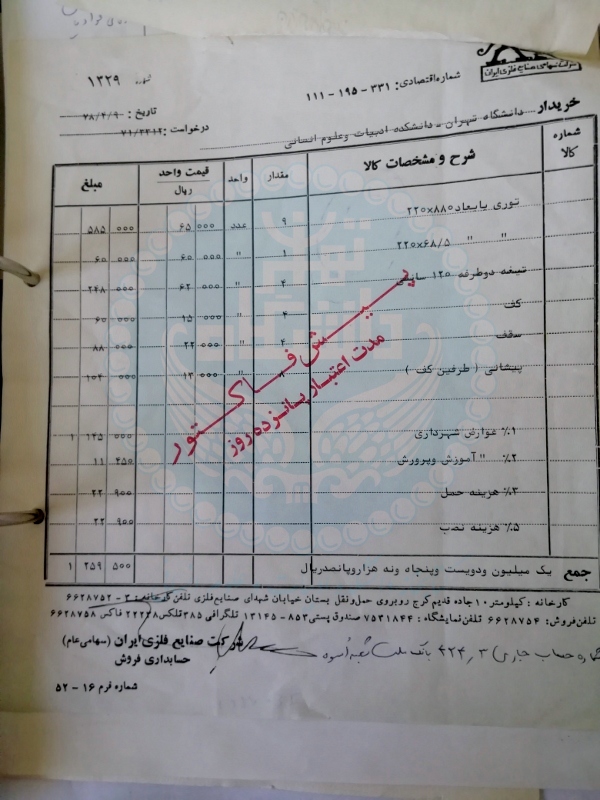 شرکت سهامی صنایع فلزی ایران
شماره اقتصادی: ۳۳۱ - ۱۹۵ - ۱۱۱
۱۳۲۹
خریدار دانشگاه تهران - دانشکده ادبیات وعلوم انسانی
تاریخ: ۷۸/۴/۹
درخواست: ۷۱/۳۳۱۲
شماره کالا | شرح و مشخصات کالا | مقدار | واحد | قیمت واحد ریال | مبلغ
توری بابعاد ۸۸۰×۲۲۰ | ۹ | عدد | ۶۵ ۰۰۰ | ۵۸۵ ۰۰۰
" " ۶۸/۵×۲۲۰ | ۱ | " | ۶۰ ۰۰۰ | ۶۰ ۰۰۰
تیغه دوطرفه ۱۲۵ سانتی | ۴ | " | ۶۲ ۰۰۰ | ۲۴۸ ۰۰۰
کف | ۴ | " | ۱۵ ۰۰۰ | ۶۰ ۰۰۰
سقف | ۴ | " | ۲۲ ۰۰۰ | ۸۸ ۰۰۰
پیشانی ( طرفین کف ) | ۸ | " | ۱۳ ۰۰۰ | ۱۰۴ ۰۰۰
۱ ۱۴۵ ۰۰۰
۱٪ عوارض شهرداری | ۱۱ ۴۵۰
۲٪ " آموزش وپرورش | ۲۲ ۹۰۰
۳٪ هزینه حمل | ۲۲ ۹۰۰
۵٪ هزینه نصب
جمع یک میلیون ودویست وپنجاه ونه هزاروپانصدریال | ۱ ۲۵۹ ۵۰۰
پیش فاکتور
مدت اعتبار پانزده روز
کارخانه: کیلومتر ۱۰ جاده قدیم کرج روبروی حمل ونقل بستان خیابان شهدای صنایع فلزی تلفن کارخانه: ۳ - ۶۶۲۸۷۵۲
تلفن فروش: ۶۶۲۸۷۵۴ تلفن نمایشگاه: ۷۵۳۱۸۴۴ صندوق پستی ۸۵۳-۱۳۱۴۵ تلگرافی ۳۸۵ تلکس ۲۲۲۳۸ فاکس ۶۶۲۸۷۵۸
شماره حساب جاری ۴۲۴/۳ بانک ملت شعبه اسوه
شرکت صنایع فلزی ایران (سهامی عام)
حسابداری فروش
شماره فرم ۱۶ - ۵۲